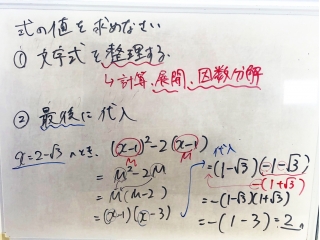 式の値を求めなさい
① 文字式を整理する.
↳計算、展開、因数分解
② 最後に代入
x=2-√3 のとき、(x-1)²-2(x-1)
M M
= M²-2M
= M(M-2)
= (x-1)(x-3)
代入
= (1-√3)(-1-√3)
-(1+√3)
= -(1-√3)(1+√3)
= -(1-3) = 2